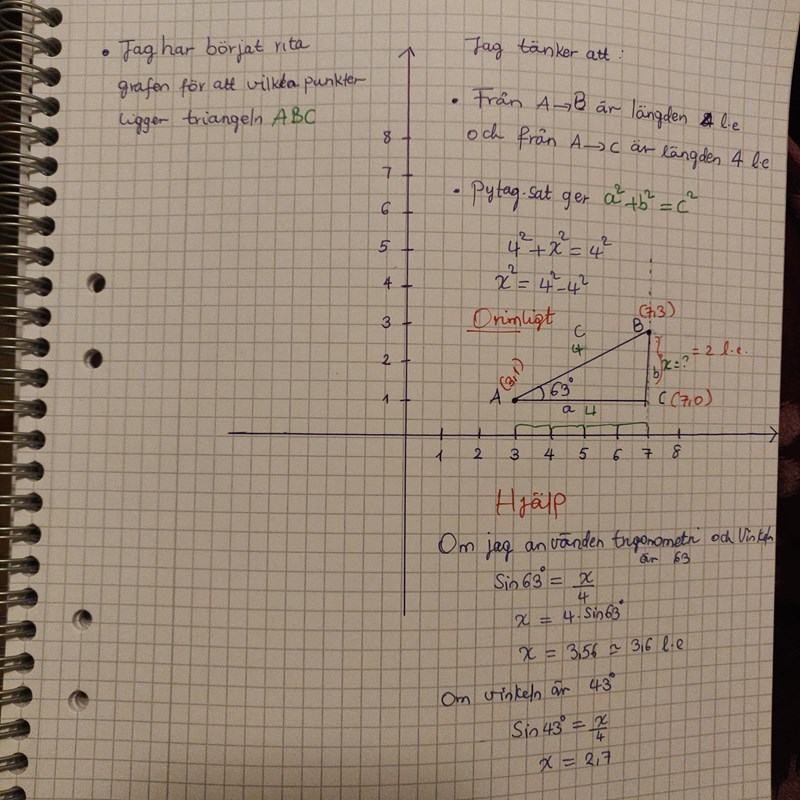 • Jag har börjat rita
grafen för att vilkta punkter
ligger triangeln ABC
Jag tänker att:
• Från A→B är längden 4 l.e
och från A→C är längden 4 l.e
• Pytag.sat ger a² + b² = c²
4² + x² = 4²
x² = 4² - 4²
Orimligt
8
7
6
5
4
3
2
1
(7,3)
B
C
4
x=? = 2 l.e.
b
(3,1)
A
63°
C (7,0)
a 4
1 2 3 4 5 6 7 8
Hjälp
Om jag använden trigonometri och Vinkeln
är 63
Sin63° = x/4
x = 4·Sin63°
x = 3,56 ≃ 3,6 l.e
Om vinkeln är 43°
Sin43° = x/4
x = 2,7